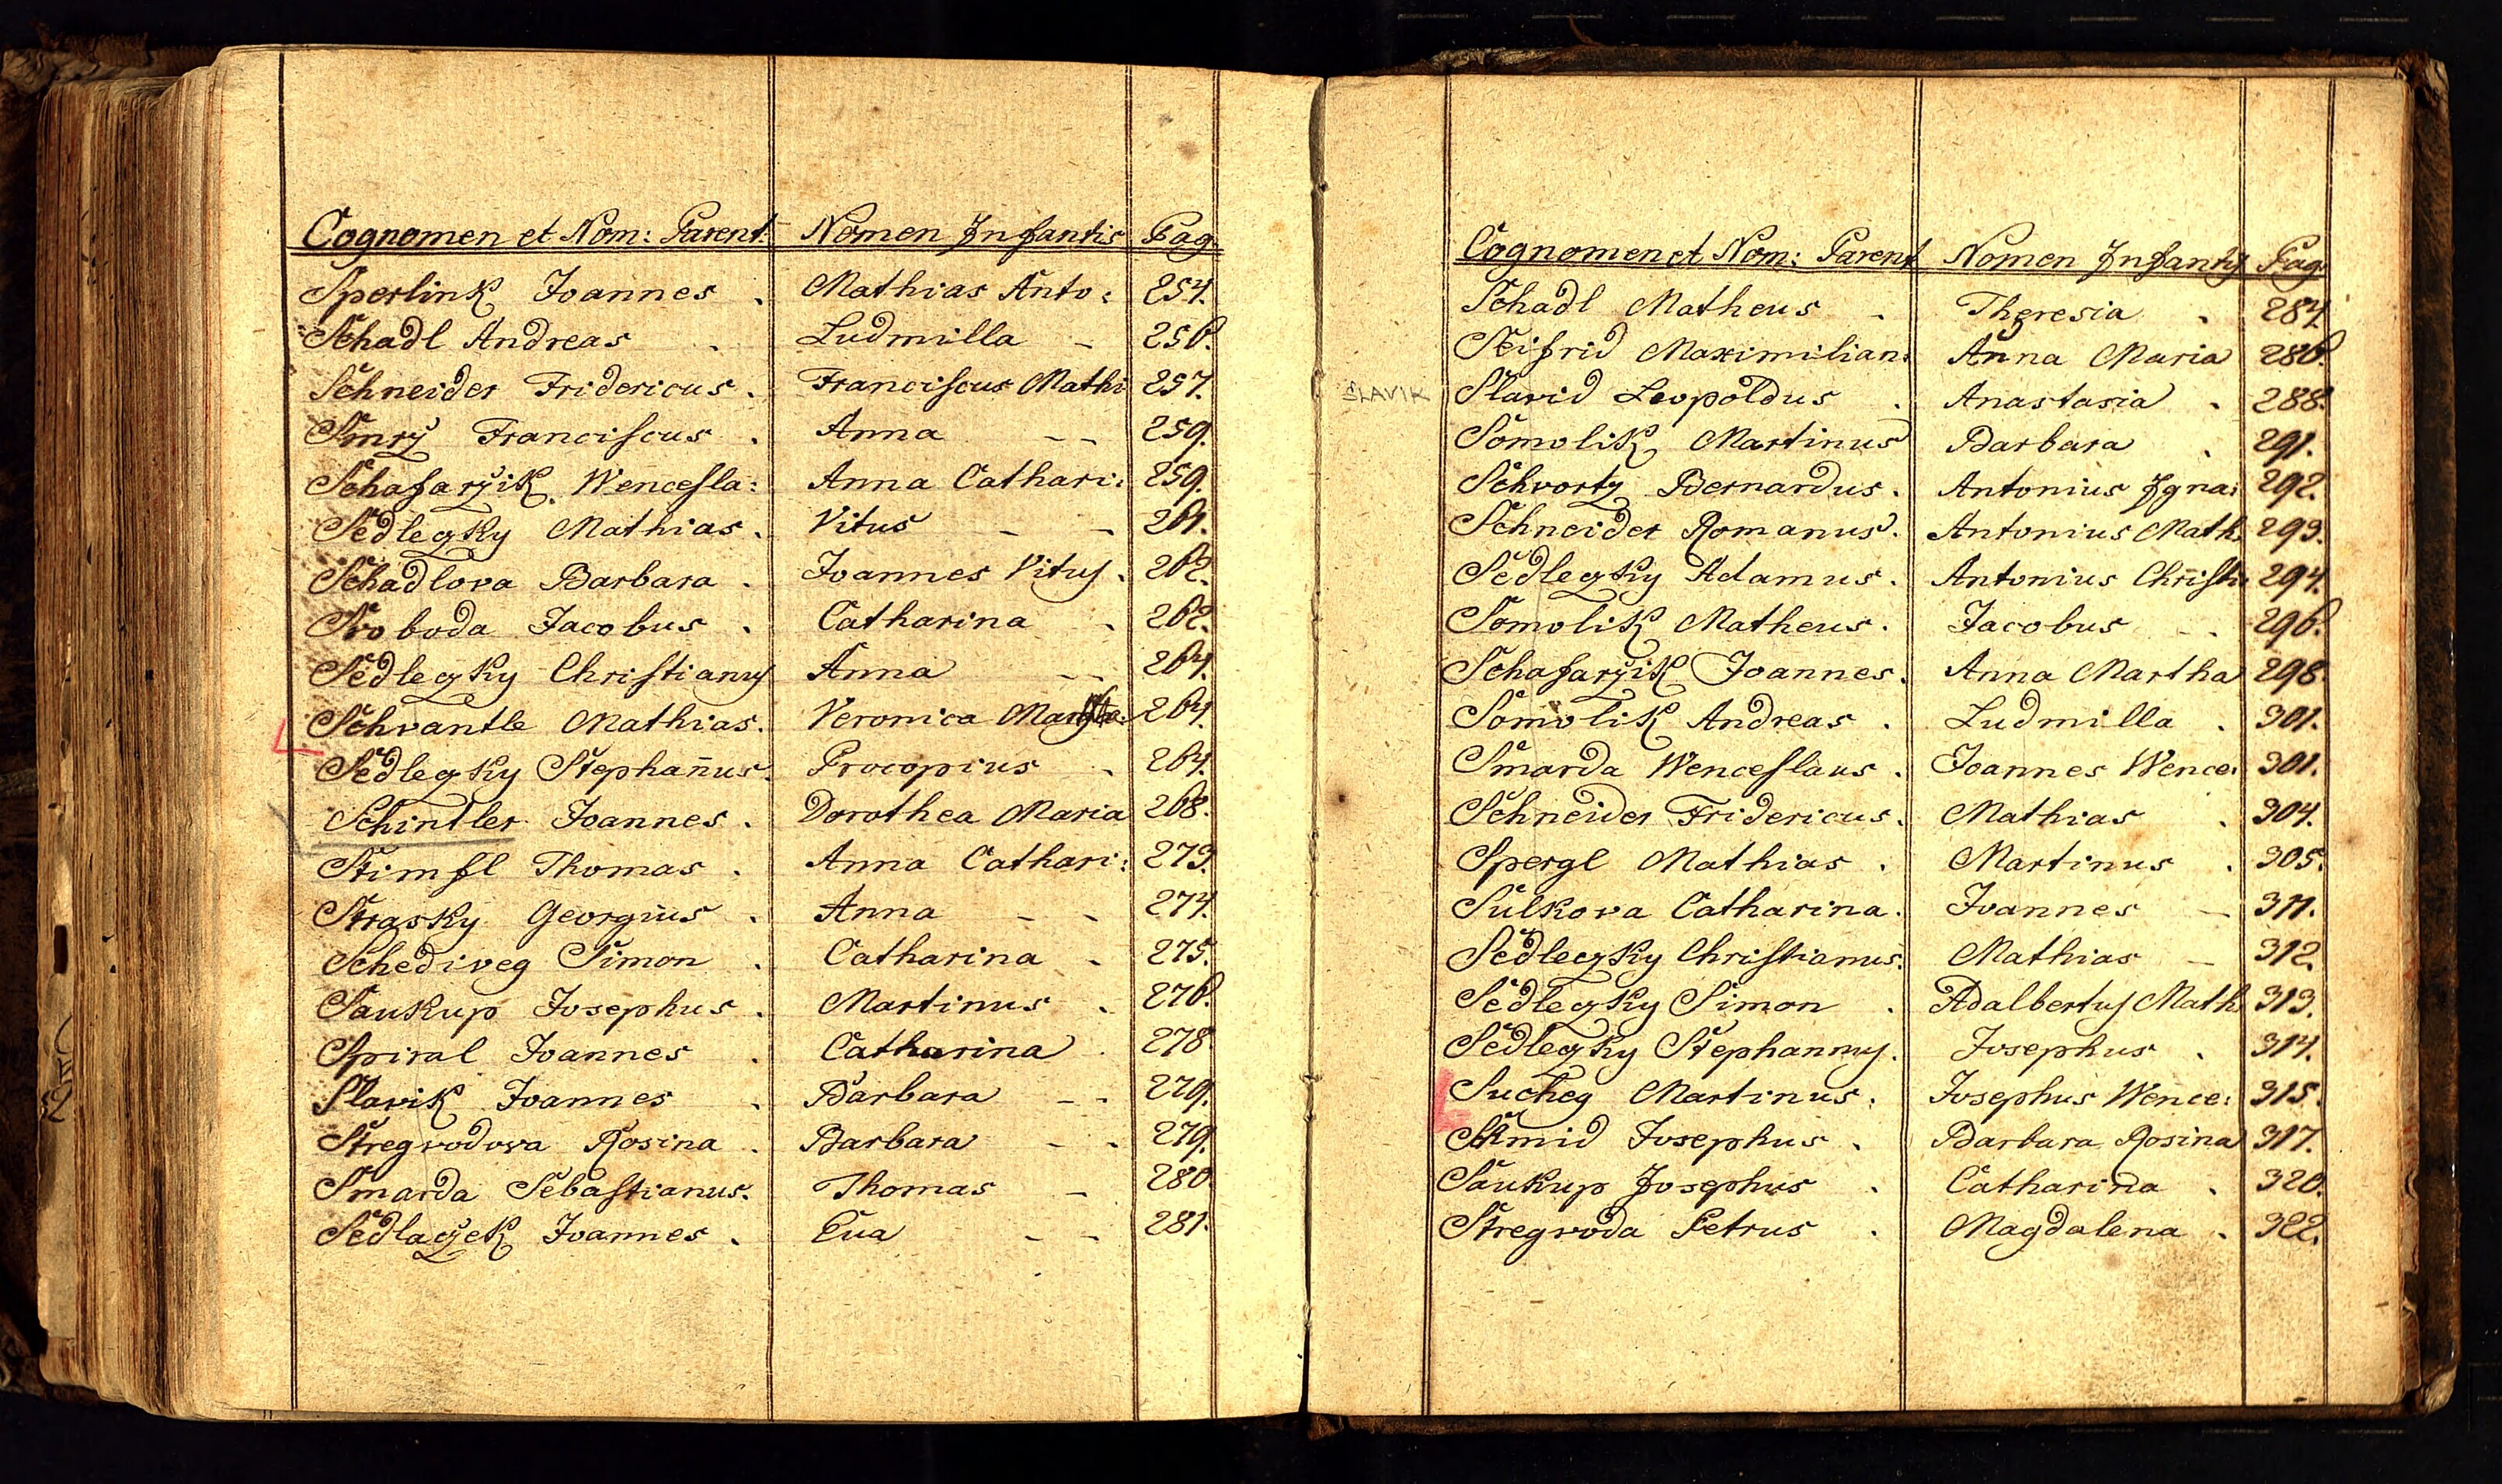 Cognomen et Nom: Parent: Nomen Infantis Pag.
Sperlink Joannes . Mathias Anto: 254.
Schadl Andreas . Ludmilla - 256.
Schneider Fridericus . Franciscus Mathi 257.
Smrz Franciscus . Anna - - 259.
Schafarzik Wencesla: Anna Cathari: 259.
Sedleczky Mathias . Vitus - - 261.
Schadlova Barbara . Joannes Vitus . 262.
Svoboda Jacobus . Catharina . 262.
Sedleczky Christianus Anna - - 264.
Schvantle Mathias. Veronica 264.
Sedleczky Stephanus. Procopius . 264.
Schintler Joannes . Dorothea Maria 268.
Stimfl Thomas . Anna Cathari: 273.
Strasky Georgius . Anna - - 274.
Schediveg Simon . Catharina - 275.
Saukup Josephus . Martinus . 276.
Spiral Joannes . Catharina . 278.
Slavik Joannes . Barbara - - 279.
Stregvodova Rosina . Barbara - - 279.
Smarda Sebastianus. Thomas - 280.
Sedlaczek Joannes . Eva - - 281.
Cognomen et Nom: Parent Nomen Infantis Pag:
Schadl Matheus . Theresia . 284.
Seifrid Maximilian: Anna Maria 286.
SLAVIK Slavid Leopoldus . Anastasia . 288.
Somolik Martinus Barbara . 291.
Schvortz Bernardus . Antonius Igna: 292.
Schneider Romanus . Antonius Math: 293.
Sedleczky Adamus . Antonius Christi 294.
Somolik Matheus . Jacobus - . 296.
Schafarzik Joannes . Anna Martha 298.
Somolik Andreas . Ludmilla . 301.
Smarda Wenceslaus . Joannes Wence: 301.
Schneider Fridericus . Mathias . 304.
Spergl Mathias . Martinus . 305.
Sulkova Catharina . Joannes - 311.
Sedleczky Christianus . Mathias - 312.
Sedleczky Simon . Adalbertus Math: 313.
Sedleczky Stephannus . Josephus . 314.
Sucheg Martinus . Josephus Wence: 315.
Schmid Josephus . Barbara Rosina 317.
Saukup Josephus . Catharina . 320.
Stregvoda Petrus . Magdalena . 322.